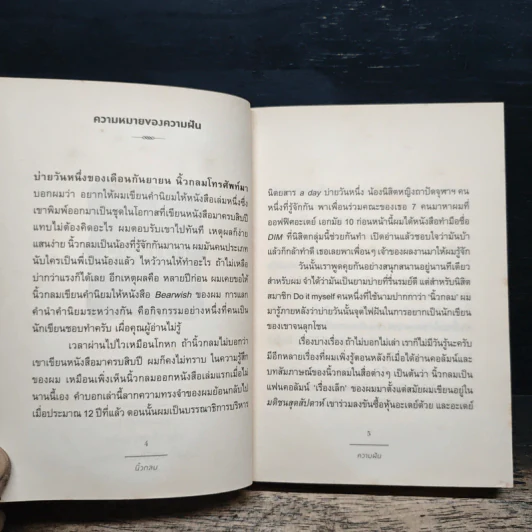 ความหมายของความฝัน
บ่ายวันหนึ่งของเดือนกันยายน นิ้วกลมโทรศัพท์มา
บอกผมว่า อยากให้ผมเขียนคำนิยมให้หนังสือเล่มหนึ่งซึ่ง
เขาพิมพ์ออกมาเป็นชุดในโอกาสที่เขียนหนังสือมาครบสิบปี
แทบไม่ต้องคิดอะไร ผมตอบรับเขาไปทันที เหตุผลก็ง่าย
แสนง่าย นิ้วกลมเป็นน้องที่รู้จักกันมานาน ผมมันคนประเภท
นับใครเป็นพี่เป็นน้องแล้ว ไหว้วานให้ทำอะไร ถ้าไม่เหลือ
บ่ากว่าแรงก็ได้เลย อีกเหตุผลคือ หลายปีก่อน ผมเคยขอให้
นิ้วกลมเขียนคำนิยมให้หนังสือ Bearwish ของผม การแลก
คำนำคำนิยมระหว่างกัน คือกิจกรรมอย่างหนึ่งที่คนเป็น
นักเขียนชอบทำครับ เผื่อคุณผู้อ่านไม่รู้
เวลาผ่านไปไวเหมือนโกหก ถ้านิ้วกลมไม่บอกว่า
เขาเขียนหนังสือมาครบสิบปี ผมก็คงไม่ทราบ ในความรู้สึก
ของผม เหมือนเพิ่งเห็นนิ้วกลมออกหนังสือเล่มแรกเมื่อไม่
นานนี้เอง คำบอกเล่านี้ลากความทรงจำของผมย้อนกลับไป
เมื่อประมาณ 12 ปีที่แล้ว ตอนนั้นผมเป็นบรรณาธิการบริหาร
4
นิ้วกลม
นิตยสาร a day บ่ายวันหนึ่ง น้องนิสิตหญิงถาปัดจุฬาฯ คน
หนึ่งที่รู้จักกัน พาเพื่อนร่วมคณะของเธอ 7 คนมาหาผมที่
ออฟฟิศอะเดย์ เอกมัย 10 ก่อนหน้านี้ผมได้หนังสือทำมือชื่อ
DIM ที่นิสิตกลุ่มนี้ช่วยกันทำ เปิดอ่านแล้วชอบใจว่ามันบ้า
แล้วก็กล้าทำดี เธอเลยพาเพื่อนๆ เจ้าของผลงานมาให้ผมรู้จัก
วันนั้นเราพูดคุยกันอย่างสนุกสนานอยู่นานทีเดียว
สำหรับผม จำได้ว่ามันเป็นยามบ่ายที่รื่นรมย์ดี แต่สำหรับนิสิต
สมาชิก Do it myself คนหนึ่งที่ใช้นามปากกาว่า 'นิ้วกลม' ผม
มารู้ภายหลังว่าบ่ายวันนั้นจุดไฟฝันในการอยากเป็นนักเขียน
ของเขาจนลุกโชน
เรื่องบางเรื่อง ถ้าไม่บอกไม่เล่า เราก็ไม่มีวันรู้นะครับ
มีอีกหลายเรื่องที่ผมเพิ่งรู้ตอนหลังก็เมื่อได้อ่านคอลัมน์และ
บทสัมภาษณ์ของนิ้วกลมในสื่อต่างๆ เป็นต้นว่า นิ้วกลมเป็น
แฟนคอลัมน์ 'เรื่องเล็ก' ของผมมาตั้งแต่สมัยผมเขียนอยู่ใน
มติชนสุดสัปดาห์ เขาร่วมลงขันซื้อหุ้นอะเดย์ด้วย และอะเดย์
5
ความฝัน